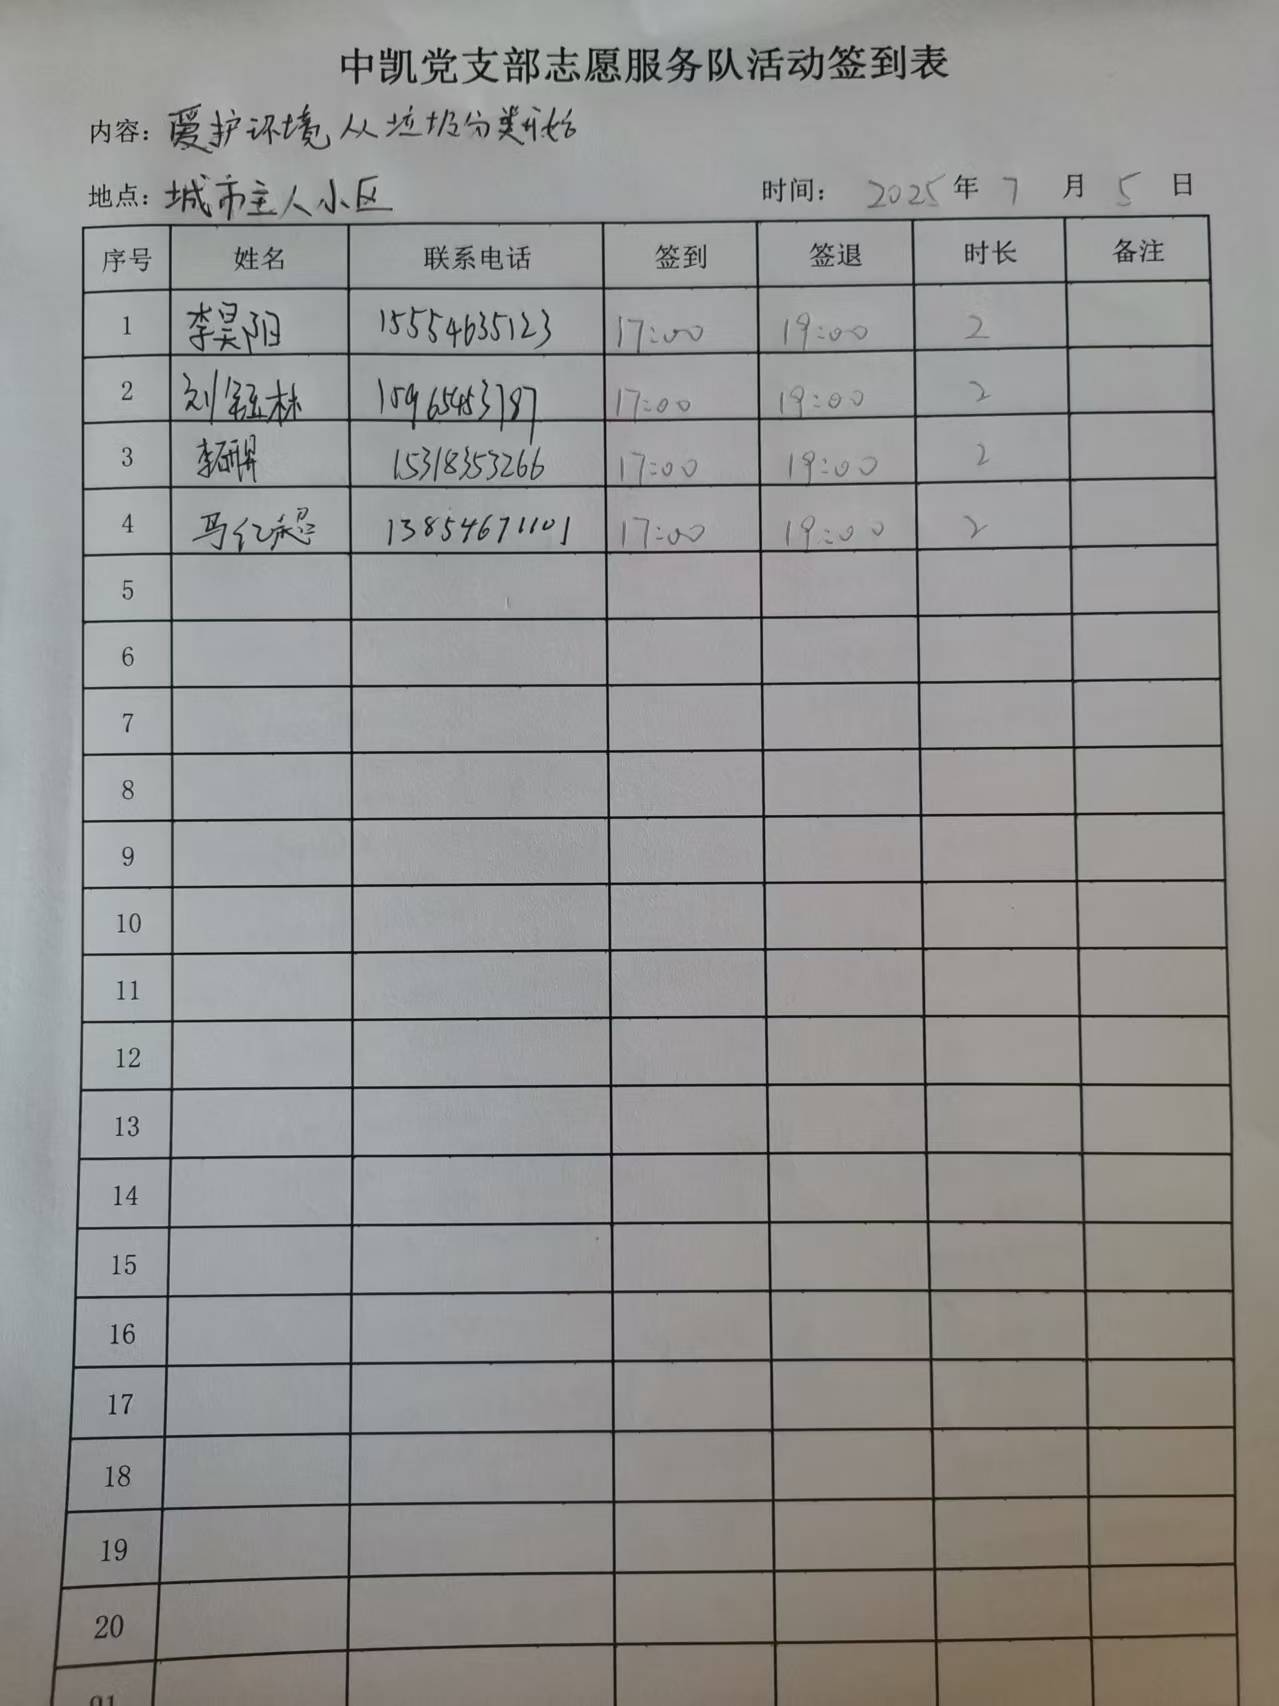 中凯党支部志愿服务队活动签到表
内容：爱护环境从垃圾分类开始
地点：城市主人小区 时间：2025年7月5日
序号 姓名 联系电话 签到 签退 时长 备注
1 李昊阳 15554635123 17:00 19:00 2
2 刘钰林 15965453787 17:00 19:00 2
3 李研昇 15318353266 17:00 19:00 2
4 马亿超 13854671101 17:00 19:00 2
5
6
7
8
9
10
11
12
13
14
15
16
17
18
19
20
21